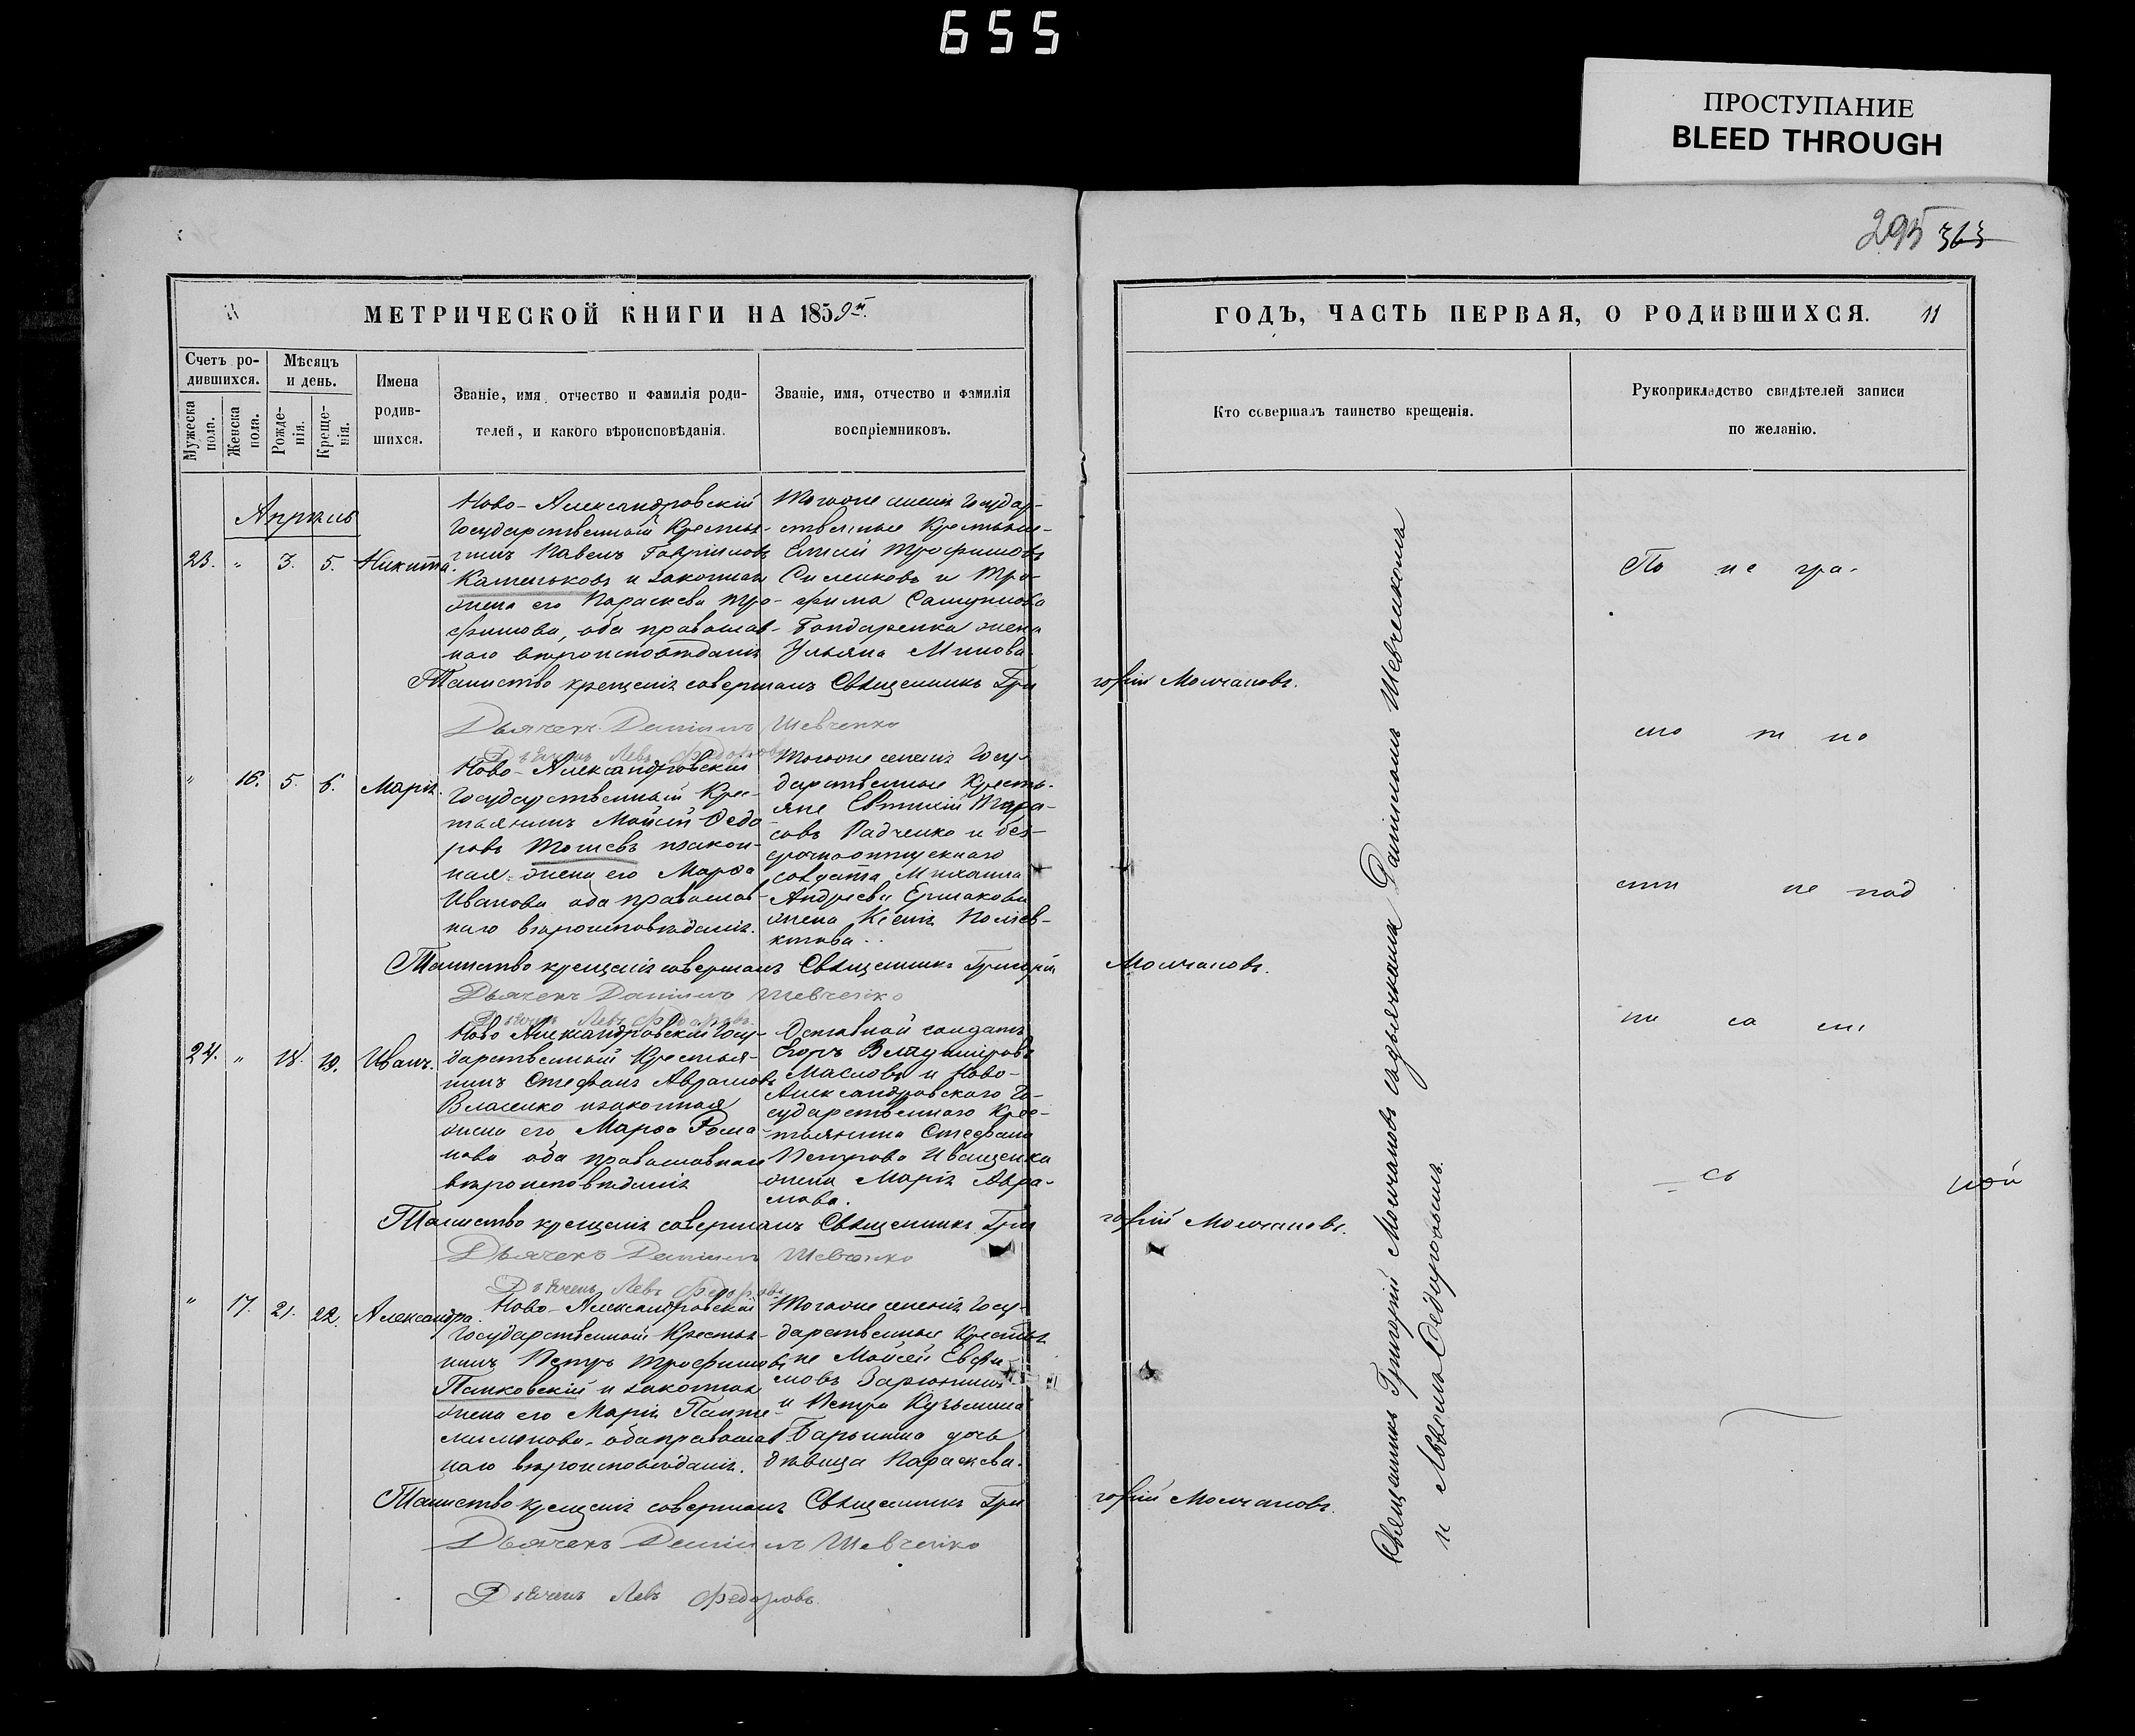 655
ПРОСТУПАНИЕ
BLEED THROUGH
295 363
МЕТРИЧЕСКОЙ КНИГИ НА 1859й.
Счетъ ро-
дившихся.
Мужеска пола.
Женска пола.
Мѣсяцъ
и день.
Рожде-
нія.
Креще-
нія.
Имена
родив-
шихся.
Званіе, имя, отчество и фамилія роди-
телей, и какого вѣроисповѣданія.
Званіе, имя, отчество и фамилія
воспріемниковъ.
ГОДЪ, ЧАСТЬ ПЕРВАЯ, О РОДИВШИХСЯ. 11
Кто совершалъ таинство крещенія.
Рукоприкладство свидѣтелей записи
по желанію.
Апрѣль
23. " 3. 5. Никита.
Ново-Александровскій
Государственный Крестья-
нинъ Павелъ Гавріиловъ
Каменьковъ и законная
жена его Параскева Тро-
фимова, оба православ-
наго вѣроисповѣданія
Тогоже селенія Государ-
ственные Крестьяне
Елисей Трофимовъ
и Тро-
фима
Бондаренка жена
Ульяна Минова.
Таинство крещенія совершалъ Священникъ Гри
горій Молчановъ.
Дьячекъ Даніилъ Шевченко
Дьячекъ Левъ Федоровъ
" 16. 5. 6. Марія.
Ново-Александровскій
Государственный Крес-
тьянинъ Мойсей Ѳедо
ровъ изакон-
ная жена его Марѳа
Иванова оба православ-
наго вѣроисповѣданія.
Тогоже селенія Госу-
дарственные Кресть-
яне Евтихій Тара-
совъ Радченко и без-
срочноотпускнаго
солдата Михаила
Андреева Ермакова
жена Ксенія Поліев-
ктова..
Таинство крещенія совершалъ Священникъ Григорій
Молчановъ.
Дьячекъ Даніилъ Шевченко
Дьячекъ Левъ Федоровъ.
24. " 18. 19. Иванъ.
Ново Александровскій Госу-
дарственный Крестья-
нинъ Стефанъ Аврамовъ
Власенко изаконная
жена его Марѳа Рома-
нова оба православнаго
вѣроисповѣданія
Отставной солдатъ
Егоръ Владиміровъ
Масловъ и Ново-
Александровскаго Го-
сударственнаго Крес-
тьянина Стефана
Петрова Иващенка
жена Марія Авра-
мова.
Таинство крещенія совершалъ Священникъ Гри
горій Молчановъ.
Дьячекъ Даніилъ Шевченко
Дьячекъ Левъ Федоровъ
" 17. 21. 22. Александра.
Ново-Александровскій
Государственный Крестья-
нинъ Петръ Трофимовъ
Панковскій и законная
жена его Марія Панте-
леимонова-обаправослав
наго вѣроисповѣданія.
Тогоже селенія Госу-
дарственные Крестья
не Мойсей Евфи-
мовъ
и Петра Кузьмина
дочь
дѣвица Параскева.
Таинство крещенія совершалъ Священникъ Гри
горій Молчановъ.
Дьячекъ Даніилъ Шевченко
Дьячекъ Левъ Федоровъ.
Священникъ Григорій Молчановъ съдьячками Даніиломъ Шевченкомъ
и Львомъ Ѳедоровымъ.
По не гра-
мо т но
сти не под
пи са ли
сь